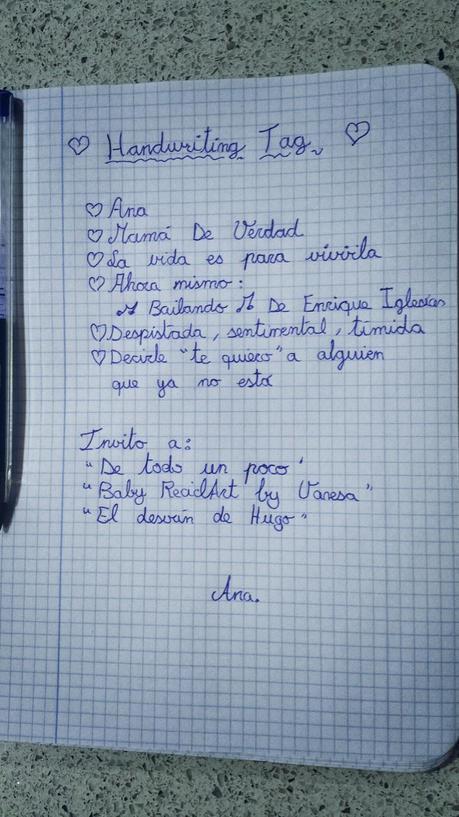 ♡ Handwriting Tag. ♡
♡ Ana
♡ Mamá De Verdad
♡ La vida es para vivirla
♡ Ahora mismo:
♫ Bailando ♫ De Enrique Iglesias
♡ Despistada, sentimental, timida
♡ Decirle "te quiero" a alguien
que ya no está
Invito a:
"De todo un poco"
"Baby ReciclArt by Vanesa"
"El desván de Hugo"
Ana.